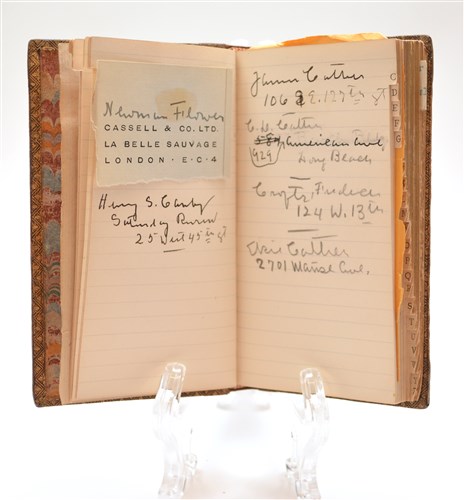 Newman Flower
CASSELL & CO. LTD.
LA BELLE SAUVAGE
LONDON · E·C·4
Henry S. Canby
Saturday Review
25 West 45th St
James Cather
106 E. 127th St
C. D. Cather
429 American Ave,
Long Beach
Frederick
124 W. 13th
Cather
2701 Ave.
C
D
E
F
G
Q
R
S
T
U
V